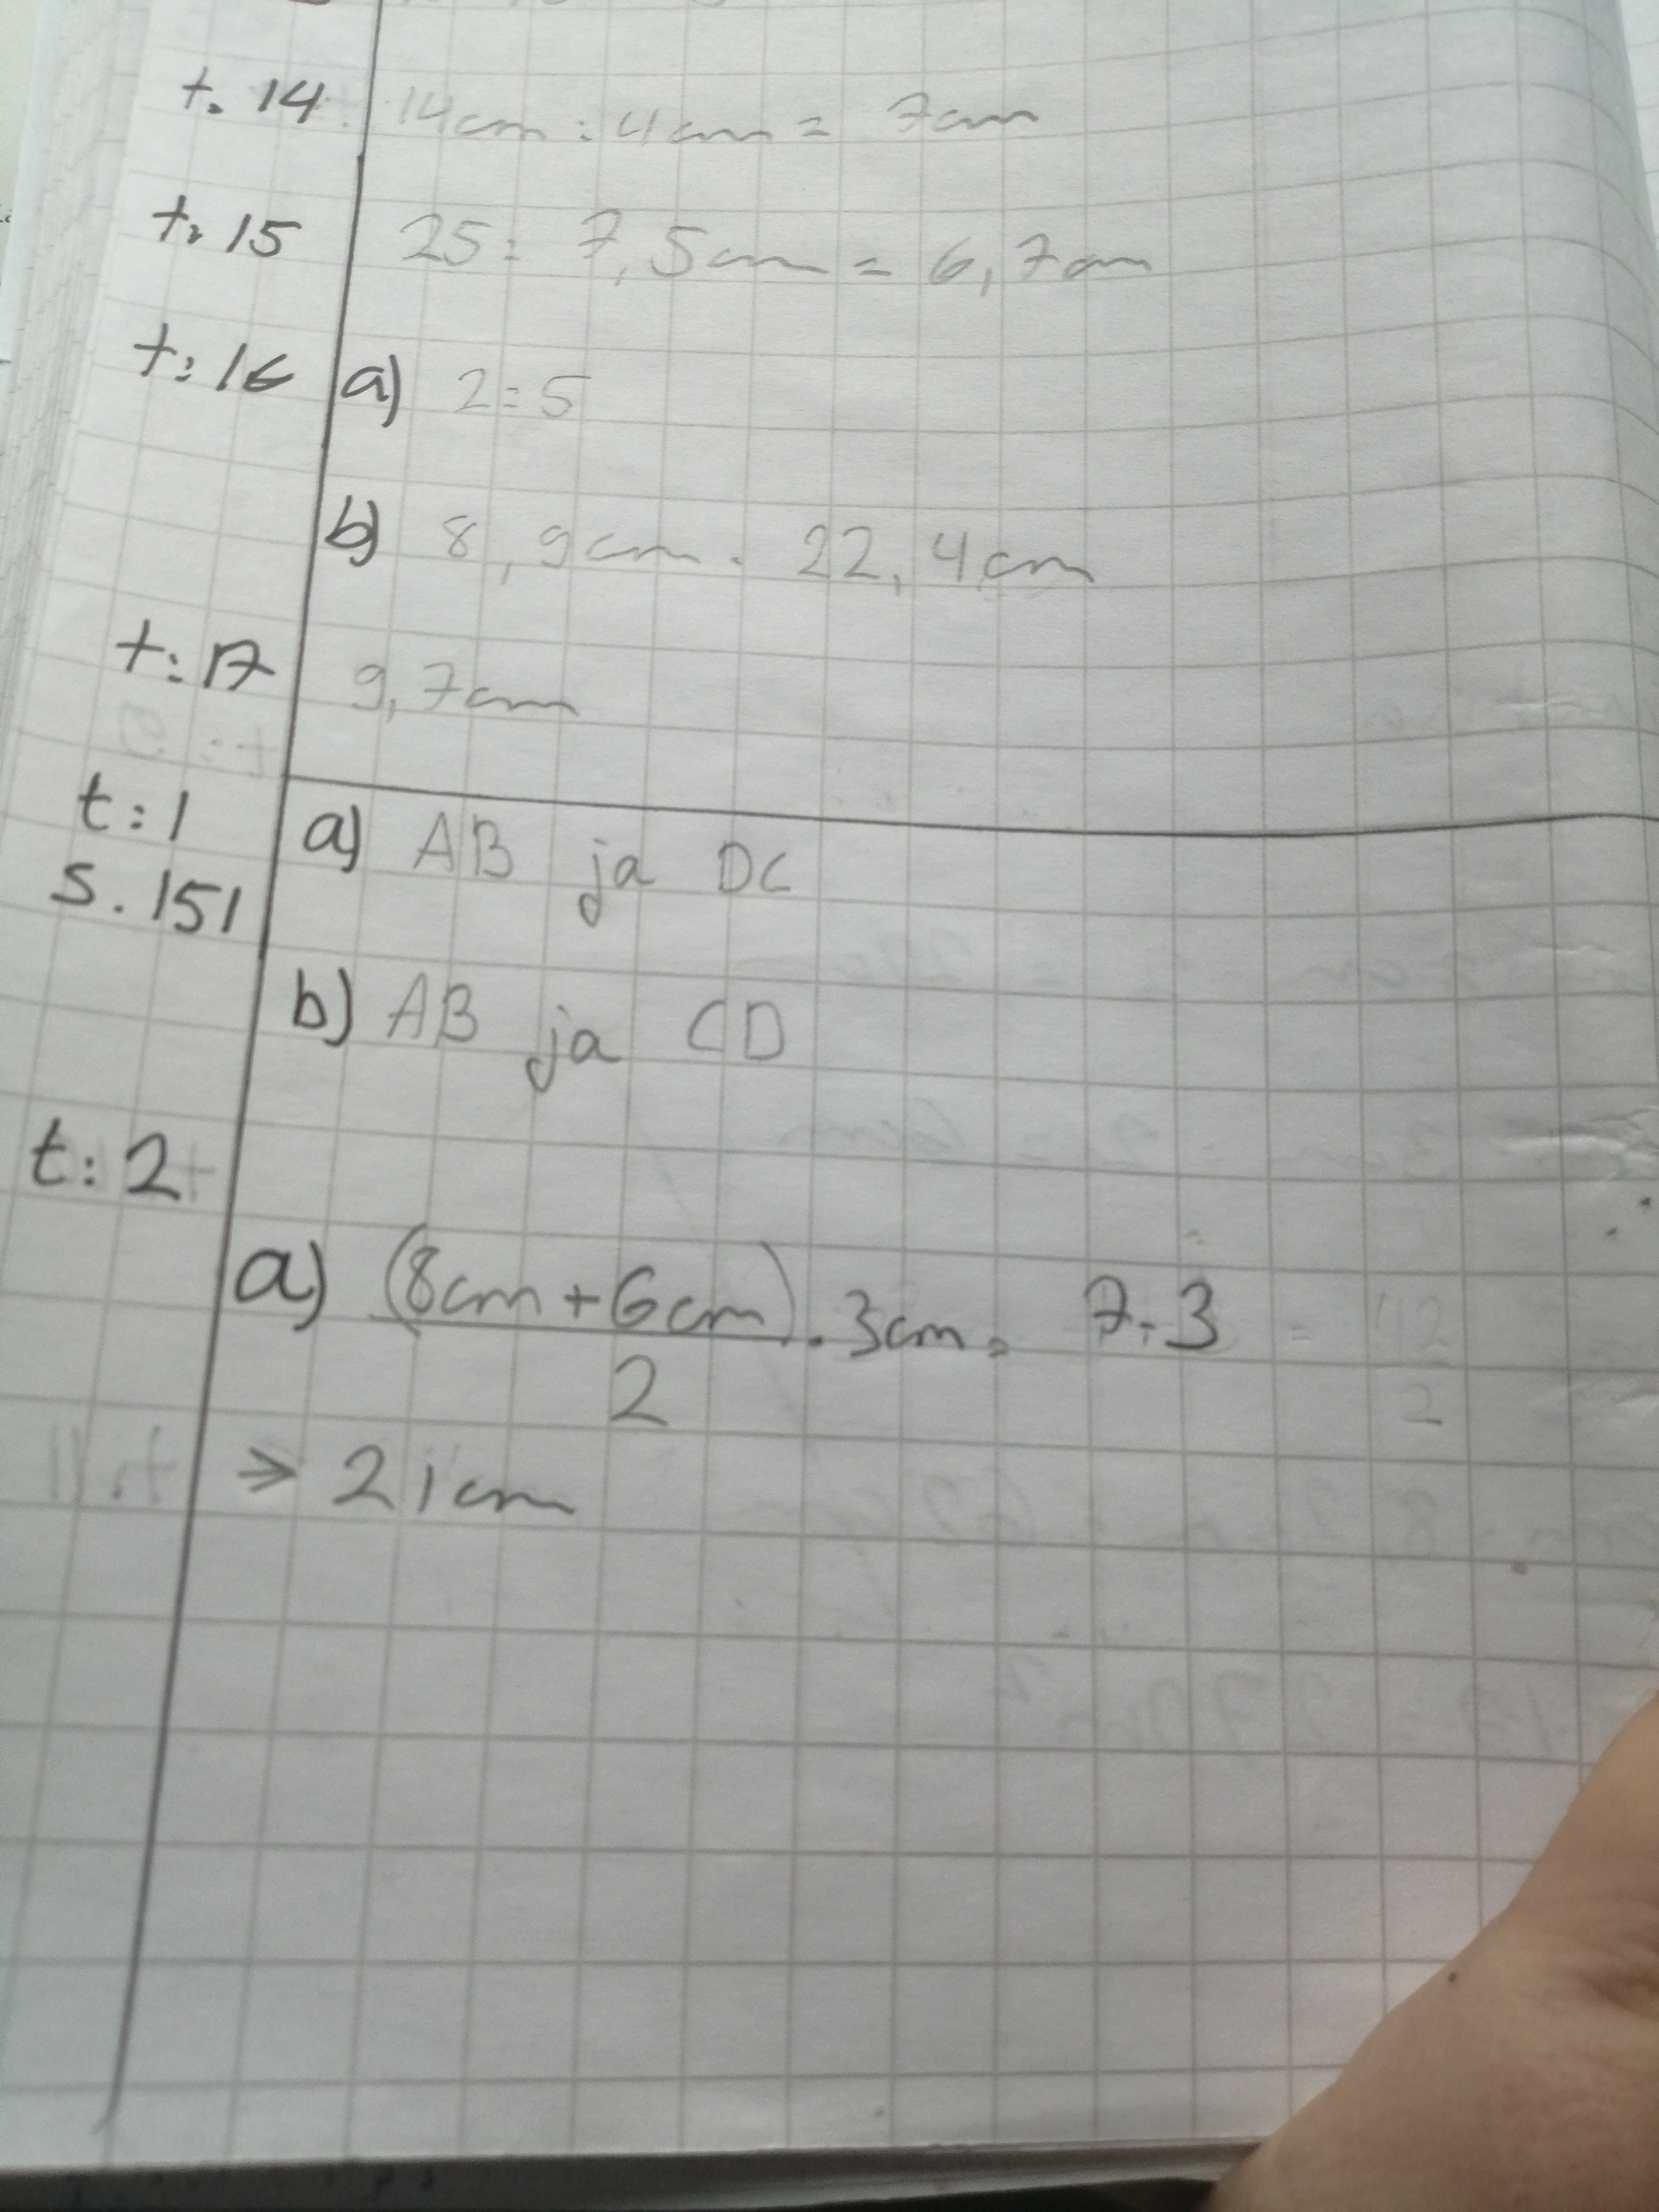 t. 14 14cm : 4cm = 7cm
t. 15 25 : 7,5cm = 6,7cm
t: 16 a) 2:5
b) 8,9cm . 22,4cm
t: 17 9,7cm
t: 1 a) AB ja DC
s. 151
b) AB ja CD
t: 2
a) (8cm+6cm) . 3cm = 7.3 = 42
2 2
→ 21cm